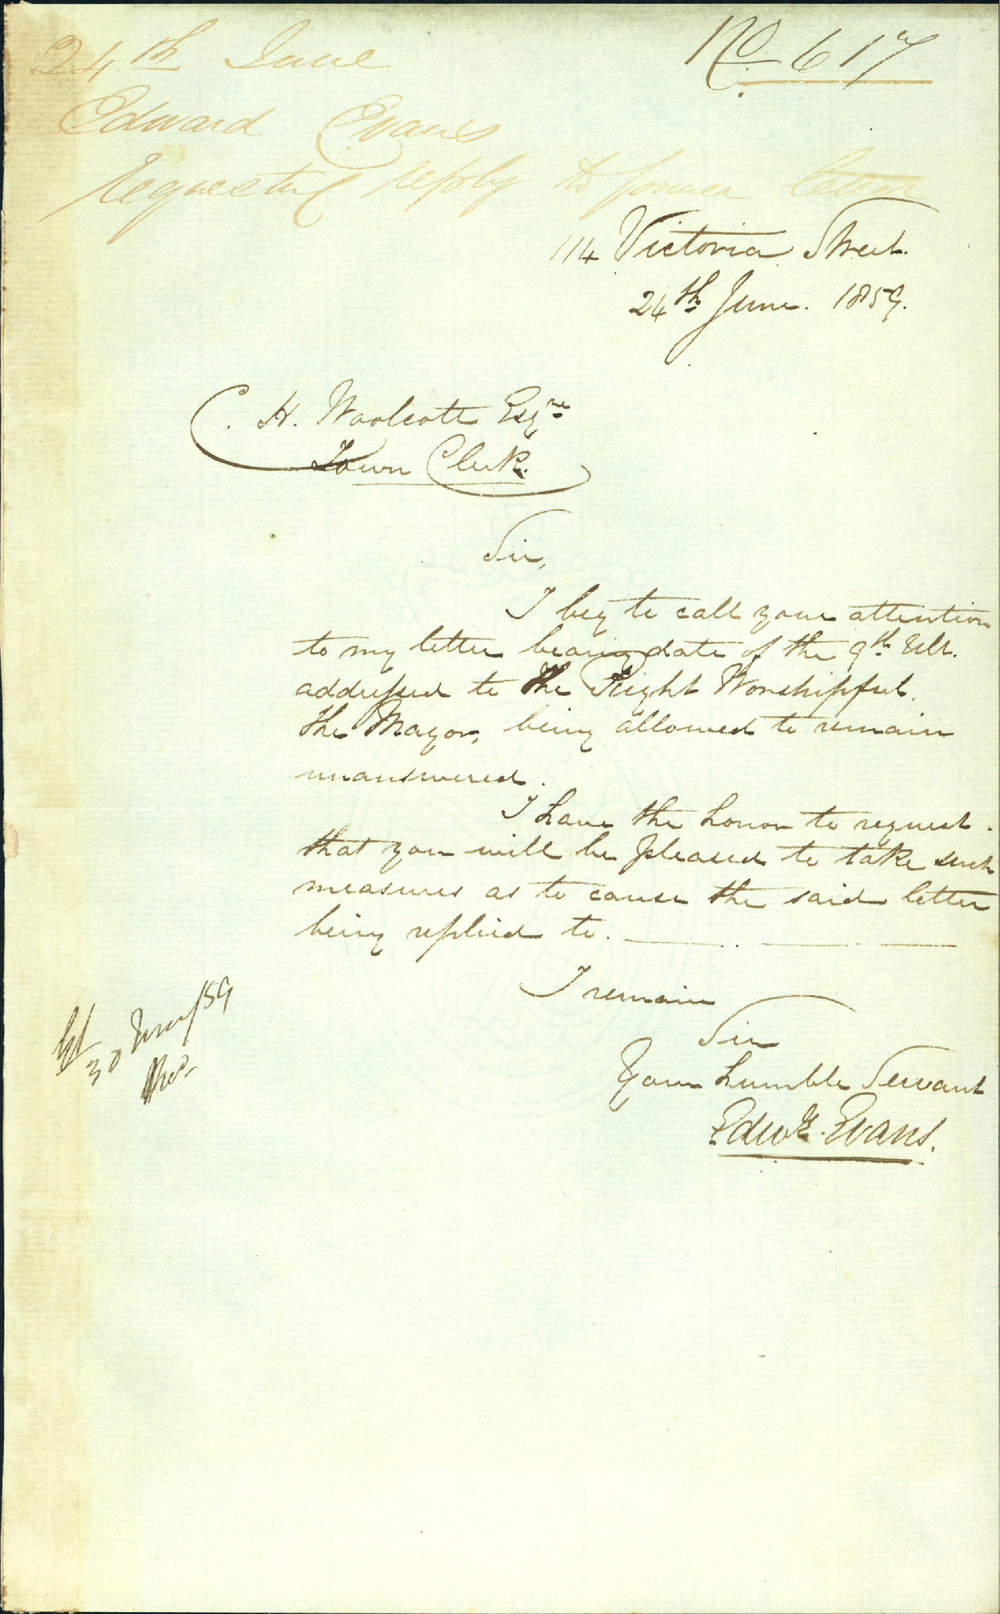 24th June
No 617
Edward Evans
requesting reply to former letter
114 Victoria Street.
24th June. 1859.
C. H. Woolcott Esqre
Town Clerk.
Sir,
I beg to call your attention
to my letter bearing date of the 9th Ult.
addressed to the Right Worshipful
the Mayor, being allowed to remain
unanswered.
I have the honor to request
that you will be pleased to take such
measures as to cause the said letter
being replied to.
I remain
Sir
Your humble Servant
Edwd. Evans.
30 /59